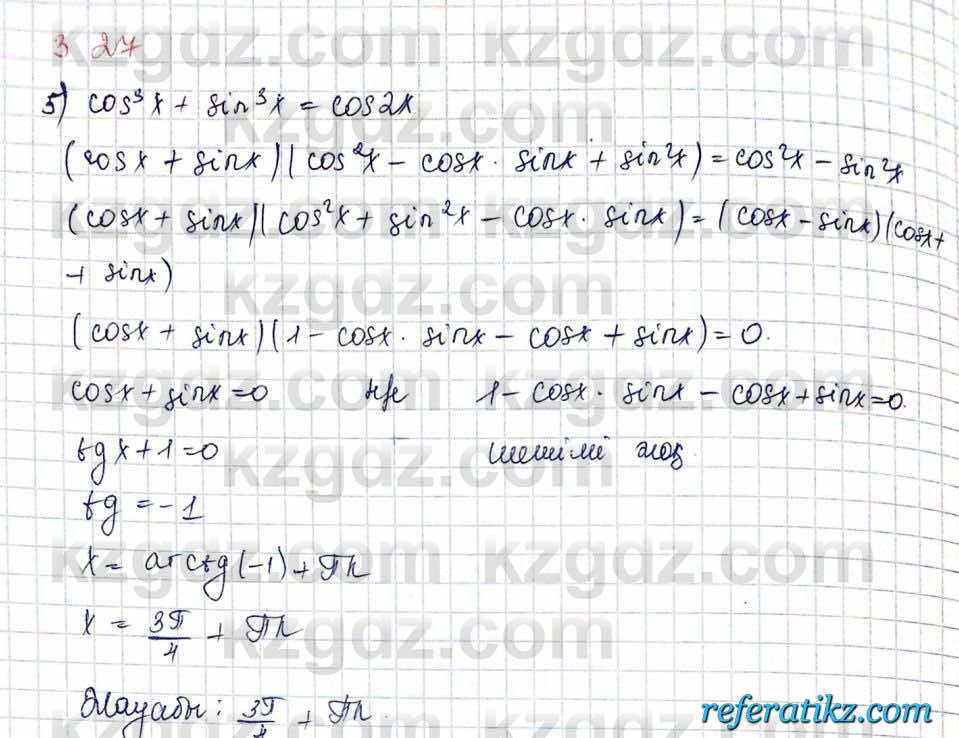 3 27
5) cos³x + sin³x = cos2x
(cosx + sinx)(cos²x - cosx · sinx + sin²x) = cos²x - sin²x
(cosx + sinx)(cos²x + sin²x - cosx · sinx) = (cosx - sinx)(cosx +
+ sinx)
(cosx + sinx)(1 - cosx · sinx - cosx + sinx) = 0.
cosx + sinx = 0 н/е 1 - cosx · sinx - cosx + sinx = 0.
tgx + 1 = 0 шешімі жоқ
tg = -1
x = arctg(-1) + πn
x = 3π/4 + πn
Жауабы: 3π/4 + πn.
kzgdz.com
referatikz.com